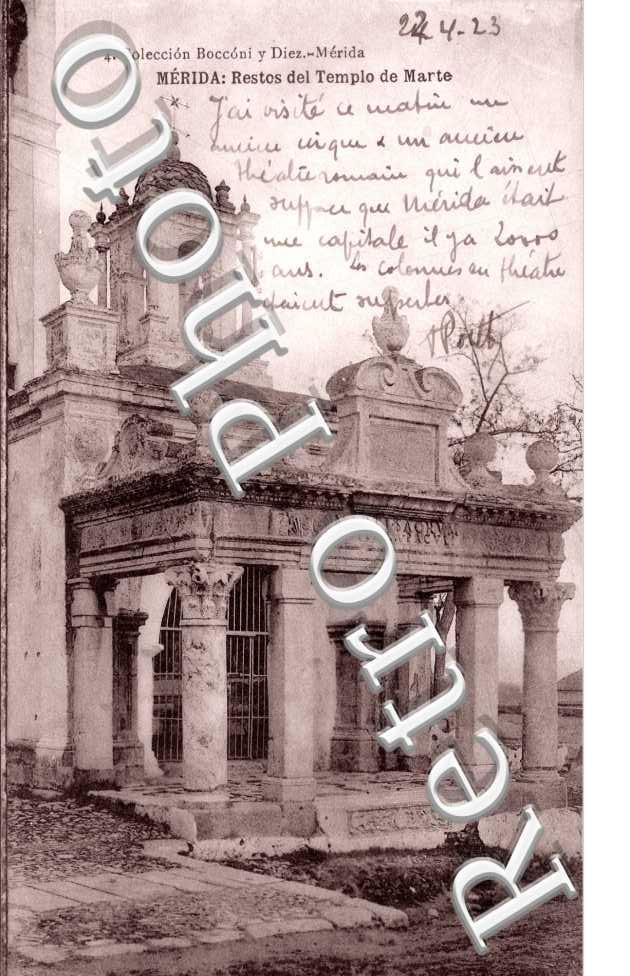 22 4-23
4. Colección Boccóni y Diez.-Mérida
MÉRIDA: Restos del Templo de Marte
J'ai visité ce matin un
ancien cirque & un ancien
théâtre romain qui laissent
que Mérida était
une capitale il y a 2000
ans. Les colonnes du théâtre
étaient superbes
Retro Photo